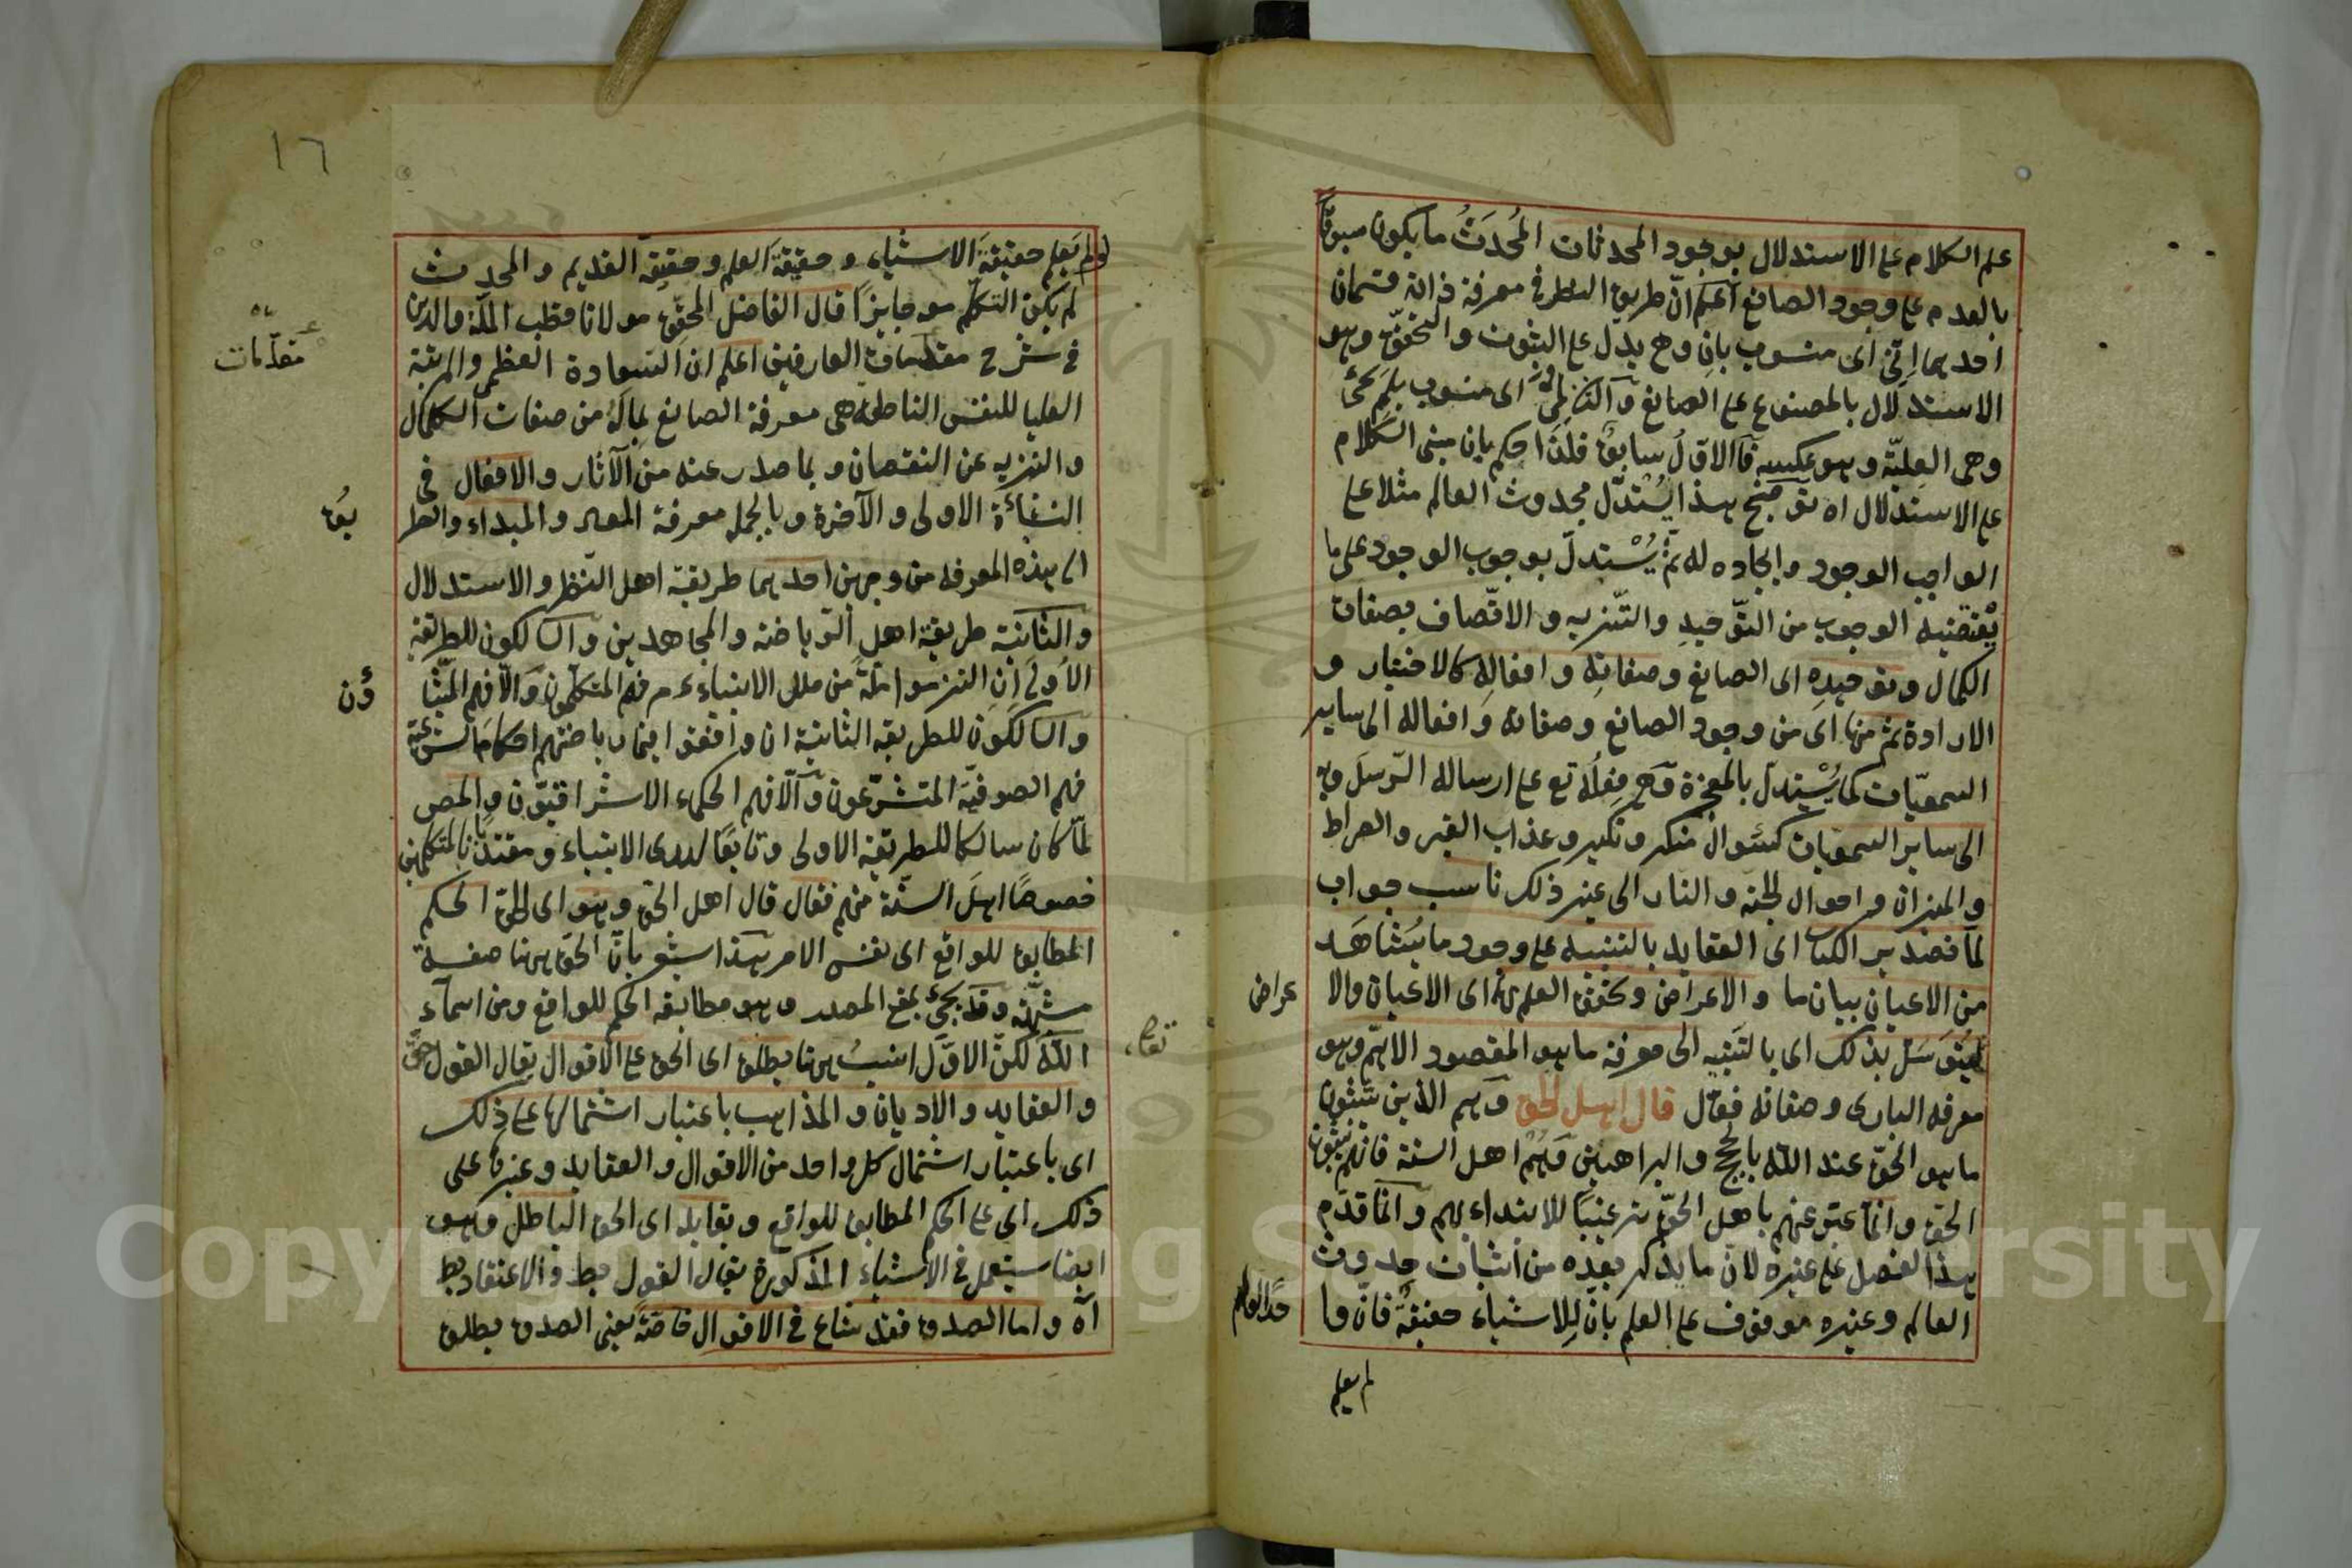 علم الكلام على الاستدلال بوجود المحدثات المُحدَثُ ما يكون مسبوقًا
بالعدم على وجود الصانع اعلم انّ طريق النظر في معرفة ذاته قسمان
احديهما إنّي اى منسوب بان وهي يدل على الثبوت والتحقّق وهو
الاستدلال بالمصنوع على الصانع والثاني لمّي اى منسوب بلم
وهى العلّيّة وهو عكسه فالاوّل سابق فلذا حكم بان مبنى الكلام
على الاستدلال اه توضيح هذا يُستدلّ بحدوث العالم مثلا على
الواجب الوجود وايجاده له ثمّ يُستدلّ بوجوب الوجود على ما
يقتضيه الوجوب من التّوحيد والتّنزيه والاتّصاف بصفات
الكمال وتوحيده اى الصانع وصفاته وافعاله كالاختيار و
الارادة ثم منها اى من وجود الصانع وصفاته وافعاله الى ساير
السمعيّات كما يُستدلّ بالمعجزة وهي فعله تع على ارساله الرّسل وبه
الى ساير السمعيات كسؤال منكر ونكير وعذاب القبر والصراط
والميزان واحوال الجنة والنار الى غير ذلك ناسب جواب
لمّا تصدير الكتاب اى العقايد بالتنبيه على وجود ما يُشاهَد
من الاعيان بيان ما والاعراض وتحقق العلم بها اى الاعيان والا
عراض
ليتوسّل بذلك اى بالتنبيه الى معرفة ما هو المقصود الاهمّ وهو
معرفة البارى وصفاته فقال قال اهل الحق وهم الذين يثبتون
ما هو الحقّ عند الله بالحجج والبراهين وهم اهل السنة فانهم يثبتون
الحقّ وانما عبّر عنهم باهل الحقّ ترغيبًا للابتداء بهم وانما قدّم
هذا الفصل على غيره لانّ ما يذكر بعده من اثبات حدوث
العالم وغيره موقوف على العلم بانّ للاشياء حقيقةً فانّ ما
لم يعلم
١٦
لم يعلم حقيقة الاشياء وحقيقة العلم وحقيقة القديم والمحدث
لم يكن التكلّم موجبا جايزًا قال الفاضل المحقّق مولانا قطب الملّة والدين
في شرح مقدمات العارفين اعلم ان السعادة العظمى والمرتبة
مقدّمات
العليا للنفس الناطقة هى معرفة الصانع بماله من صفات الكمال
والتنزيه عن النقصان وبما صدر عنه من الآثار والافعال في
النشأة الاولى والآخرة وبالجملة معرفة المعاد والمبداء والطر
يق
الى هذه المعرفة من وجهين احديهما طريقة اهل النظر والاستدلال
والثانية طريقة اهل الرّياضة والمجاهدين والسالكون للطريقة
الأولى إن التزموا ملّةً من ملل الانبياء ع م فهم المتكلّمون والّا فهم المشّا
ؤن
والسالكون للطريقة الثانية ان وافقوا في رياضتهم احكام الشريعة
فهم الصوفيّة المتشرّعون والّا فهم الحكماء الاشراقيّون والمص
لمّا كان سالكا للطريقة الاولى وتابعًا لدى الانبياء ومقتديًا بالمتكلمين
خصوصًا اهل السنّة منهم فقال قال اهل الحق وهو اى الحق الحكم
المطابق للواقع اى نفس الامر هذا يشعر بانّ الحق ههنا صفة
مشبّهة وقد يجئ بمعنى المصدر وهو مطابقة الحكم للواقع ومن اسماء
الله تعالى
لكنّ الاوّل انسب ههنا يطلق اى الحق على الاقوال يقال القول حقّ
والعقايد والاديان والمذاهب باعتبار اشتمالها على ذلك
اى باعتبار اشتمال كل واحد من الاقوال والعقايد وغيرها على
ذلك اى على الحكم المطابق للواقع ويقابله اى الحق الباطل وهو
ايضا يستعمل في الاشياء المذكورة يقال القول بط والاعتقاد بط
اه واما الصدق فقد شاع في الاقوال خاصّةً يعنى الصدق يطلق